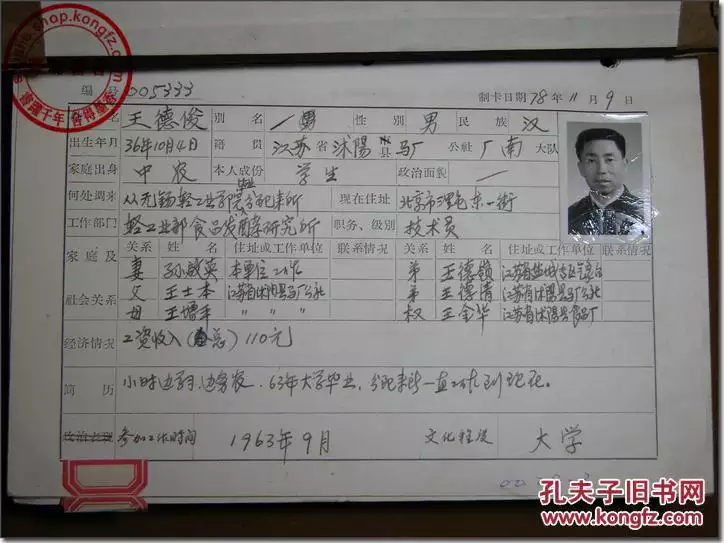 shop.kongfz.com
书香千年 合博万家
编号 005333 制卡日期 78年11月9日
姓名 王德俊 别名 / 男 性别 男 民族 汉
出生年月 36年10月4日 籍贯 江苏省沭陽县马厂公社厂南大队
家庭出身 中农 本人成份 学生 政治面貌 —
何处调来 从无锡轻工业学院分配来所 现在住址 北京市 东一街
工作部门 轻工业部食品发酵研究所 职务、级别 技术员
家庭及社会关系 关系 姓名 住址或工作单位 联系情况 关系 姓名 住址或工作单位 联系情况
妻 孙 英 本单位工作 弟 王德领 江苏省盐城
父 王士本 江苏省沭阳县马厂公社 弟 王德清 江苏省沭陽县马厂公社
母 王增 " " " 叔 王金华 江苏省沭陽县食品厂
经济情况 工资收入(总)110元
简历 小时边学习、边务农,63年大学毕业,分配来所一直工作到现在。
参加工作时间 1963年9月 文化程度 大学
孔夫子旧书网
www.kongfz.com